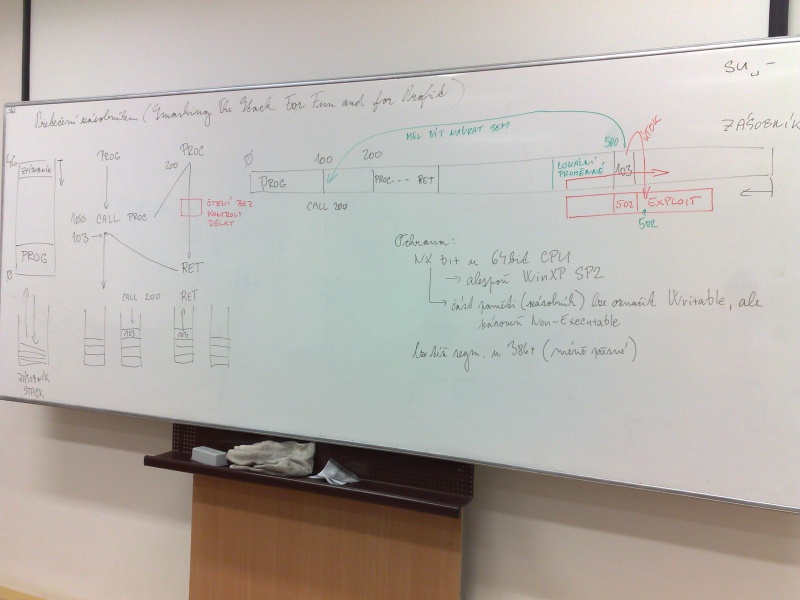 SU␣-
Přetečení zásobníku (Smashing The Stack For Fun and for Profit)
ZÁSOBNÍK
4G
ZÁSOBNÍK
PROG
0
ZÁSOBNÍK
STACK
PROG
PROC
200
100 CALL PROC
103
ČTENÍ BEZ
KONTROLY
DÉLKY
RET
CALL 200
RET
103
103
MĚL BÝT NÁVRAT SEM
0
100
200
500
ÚTOK
PROG
PROC --- RET
LOKÁLNÍ
PROMĚNNÉ
103
CALL 200
502
EXPLOIT
502
Ochrana:
NX bit u 64bit CPU
→ alespoň WinXP SP2
→ část paměti (zásobník) lze označit Writable, ale
zároveň Non-Executable
lze též segm. u 386+ (méně